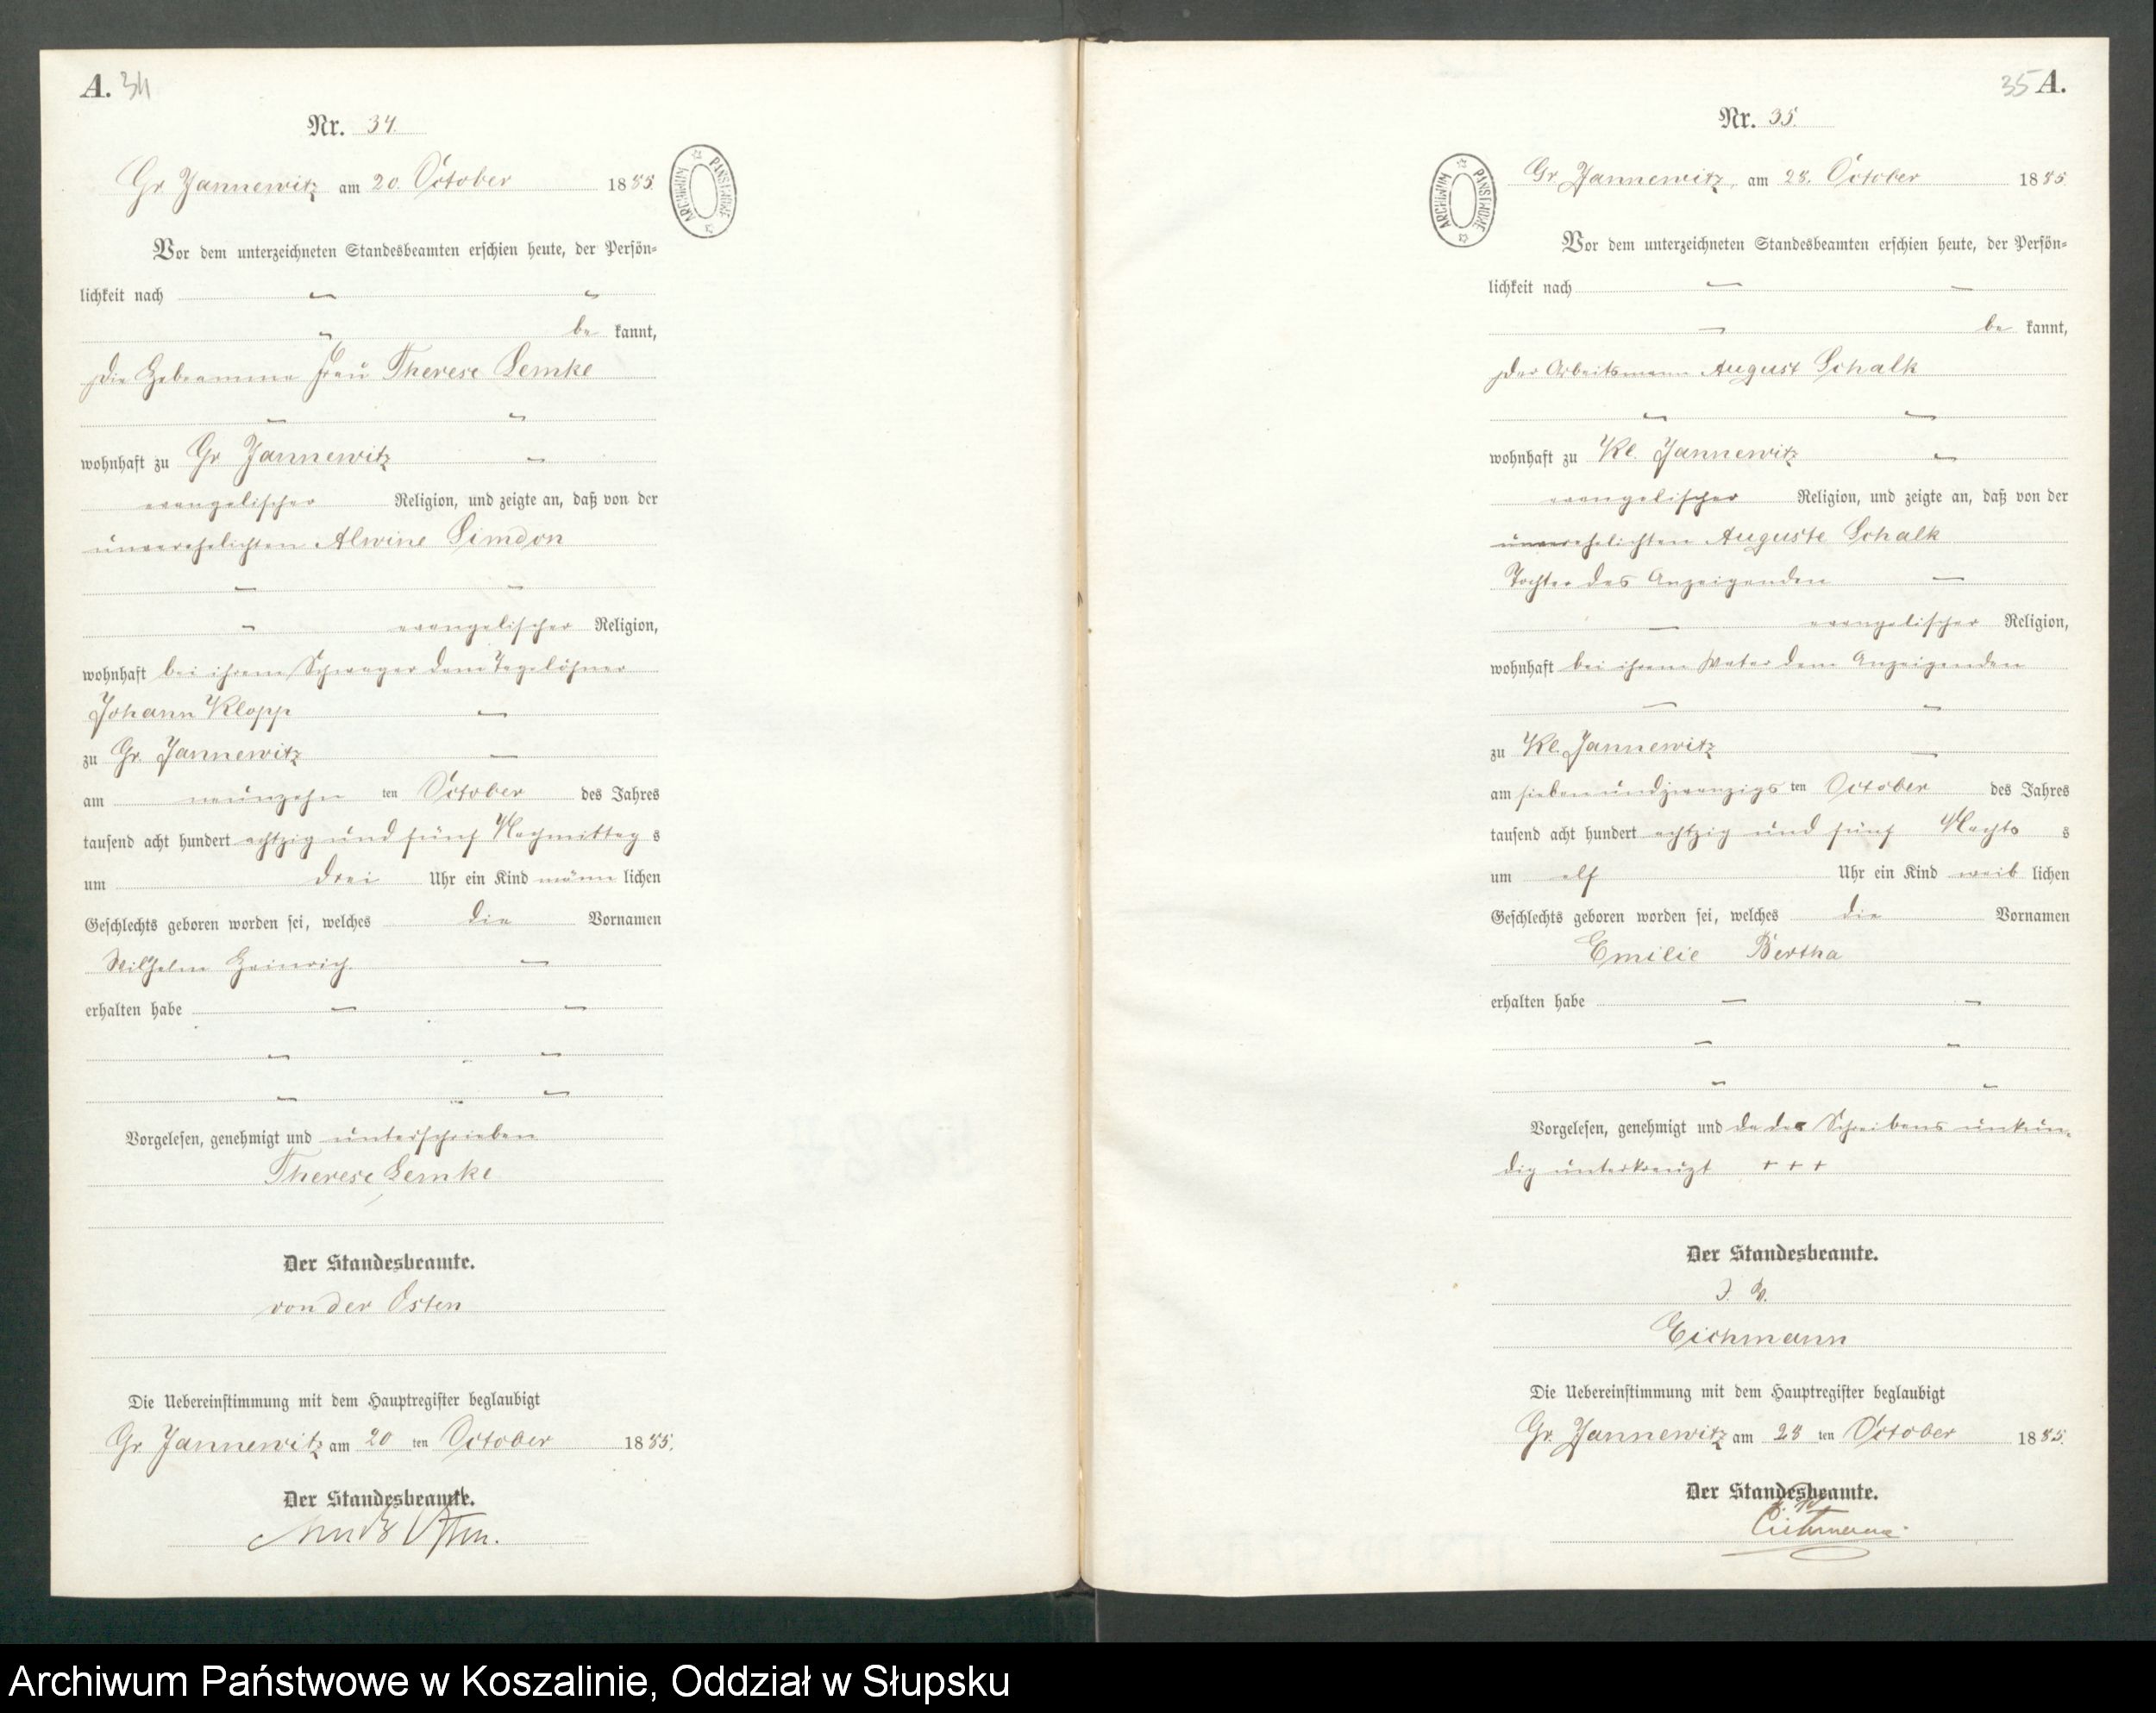 A. 34
Nr. 34.
Gr Jannewitz am 20. October 1885
ARCHIWUM PAŃSTWOWE
Vor dem unterzeichneten Standesbeamten erschien heute, der Persön=
lichkeit nach
be kannt,
die Hebeamme Frau Therese Lemke
wohnhaft zu Gr Jannewitz
evangelischer Religion, und zeigte an, daß von der
unverehelichten Alwine Simdon
evangelischer Religion,
wohnhaft bei ihrem Schwager dem Tagelöhner
Johann Klopp
zu Gr. Jannewitz
am neunzehn ten October des Jahres
tausend acht hundert achtzig und fünf Nachmittag s
um drei Uhr ein Kind männ lichen
Geschlechts geboren worden sei, welches die Vornamen
Wilhelm Heinrich.
erhalten habe
Vorgelesen, genehmigt und unterschrieben
Therese Lemke
Der Standesbeamte.
von der Osten
Die Uebereinstimmung mit dem Hauptregister beglaubigt
Gr Jannewitz am 20 ten October 1885.
Der Standesbeamte.
Osten.
35 A.
Nr. 35.
ARCHIWUM PAŃSTWOWE
Gr. Jannewitz, am 28. October 1885
Vor dem unterzeichneten Standesbeamten erschien heute, der Persön=
lichkeit nach
be kannt,
der Arbeitsmann August Schalk
wohnhaft zu Kl. Jannewitz
evangelischer Religion, und zeigte an, daß von der
unverehelichten Auguste Schalk
Tochter des Anzeigenden
evangelischer Religion,
wohnhaft bei ihrem Vater dem Anzeigenden
zu Kl. Jannewitz
am siebenundzwanzigs ten October des Jahres
tausend acht hundert achtzig und fünf Nachts s
um elf Uhr ein Kind weib lichen
Geschlechts geboren worden sei, welches die Vornamen
Emilie Bertha
erhalten habe
Vorgelesen, genehmigt und da des Schreibens unkun-
dig unterkreuzt + + +
Der Standesbeamte.
J. V.
Eichmann
Die Uebereinstimmung mit dem Hauptregister beglaubigt
Gr. Jannewitz am 28 ten October 1885.
Der Standesbeamte.
J. V.
Eichmann.
Archiwum Państwowe w Koszalinie, Oddział w Słupsku